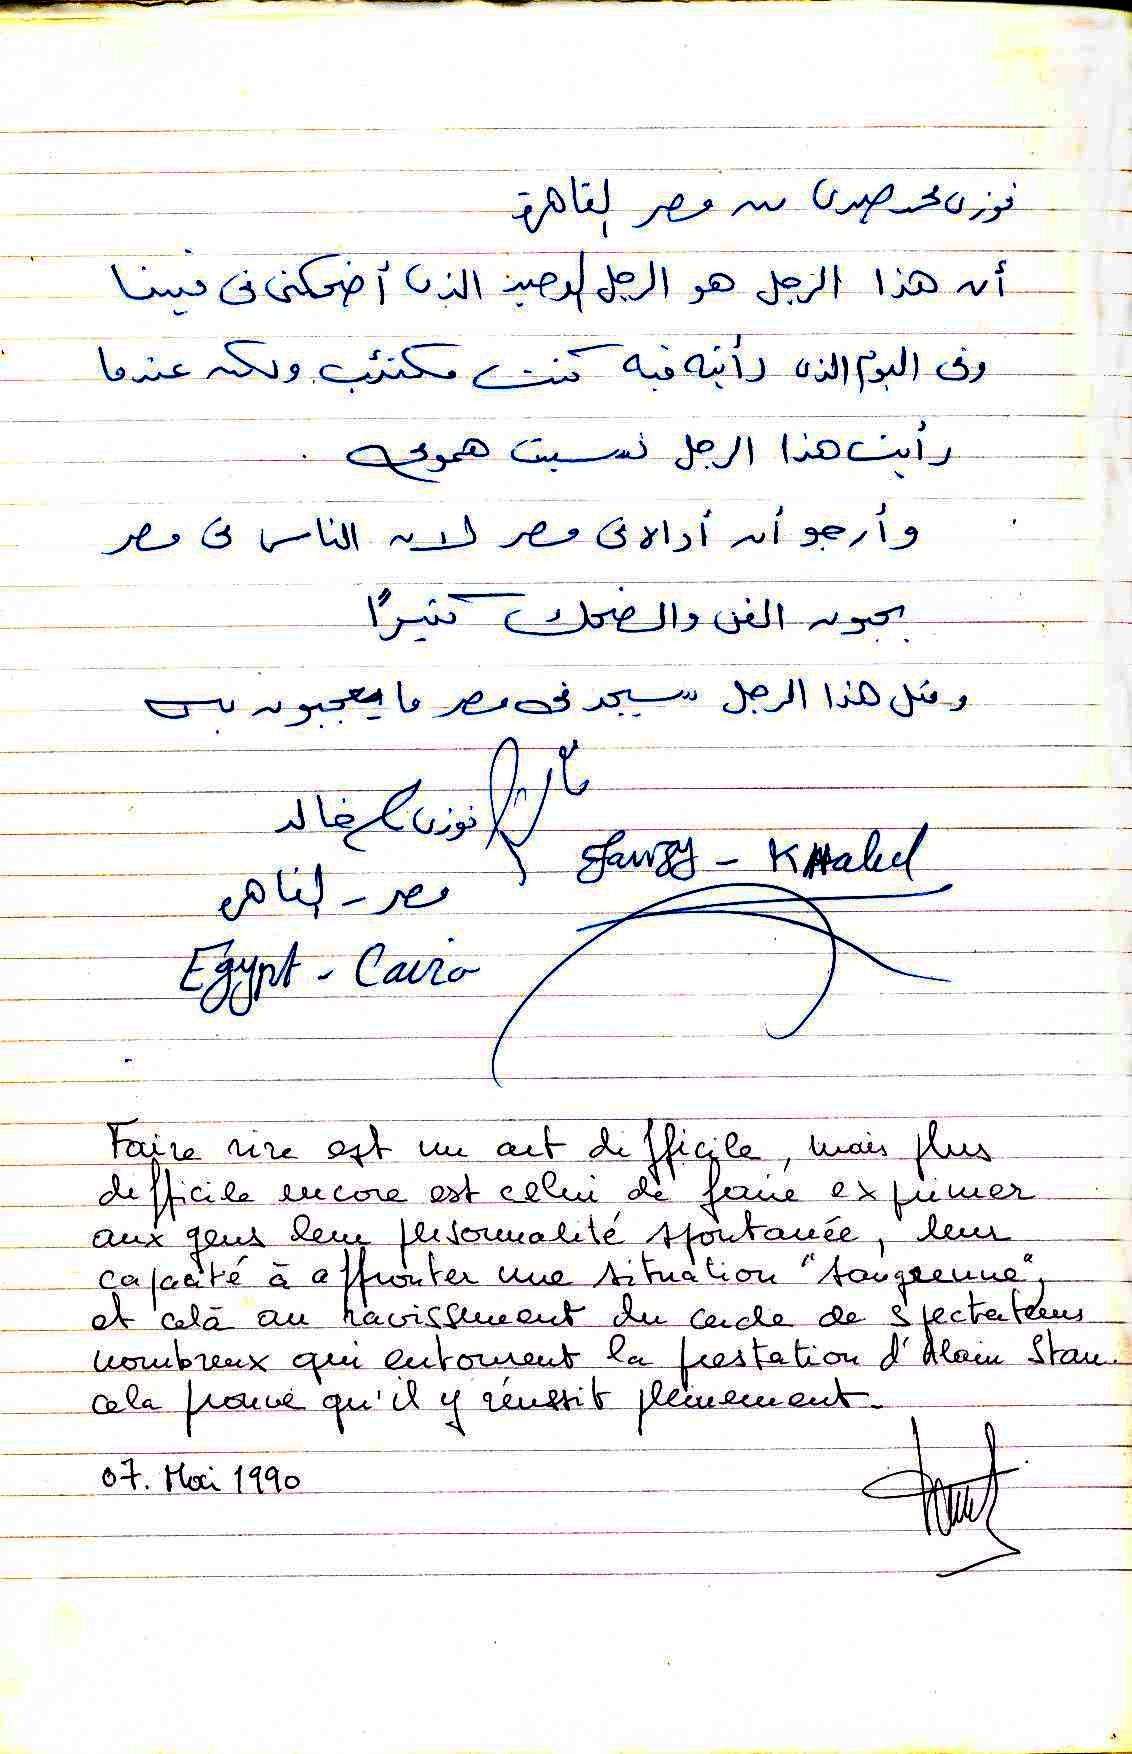 فوزى محمد صبرى من مصر القاهرة
أن هذا الرجل هو الرجل الوحيد الذى أضحكنى فى فيينا
وفى اليوم الذى رأيته فيه كنت مكتئب ولكن عندما
رأيت هذا الرجل نسيت همومى .
وأرجو أن أراه فى مصر لان الناس فى مصر
يحبون الفن والضحك كثيرًا
ومثل هذا الرجل سيجد فى مصر ما يعجبون به
فوزى خالد
Fawzy - KHaled
مصر - القاهرة
Egypt - Cairo
Faire rire est un art difficile, mais plus
difficile encore est celui de faire exprimer
aux gens leur personnalité spontanée, leur
capacité à affronter une situation "saugrenue",
et celà au ravissement du cercle de spectateurs
nombreux qui entourent la prestation d'Alain Stan.
cela prouve qu'il y réussit pleinement.
07. Mai 1990